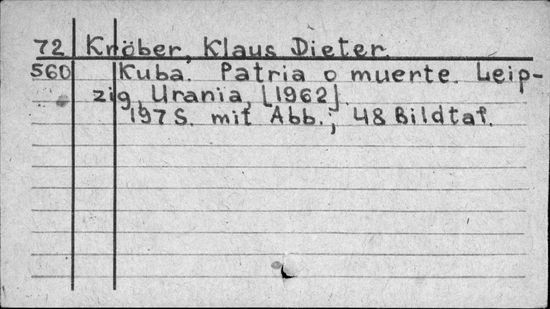 72 Kröber, Klaus Dieter.
560 Kuba. Patria o muerte. Leip-
zig, Urania, [1962].
197 S. mit Abb.; 48 Bildtaf.